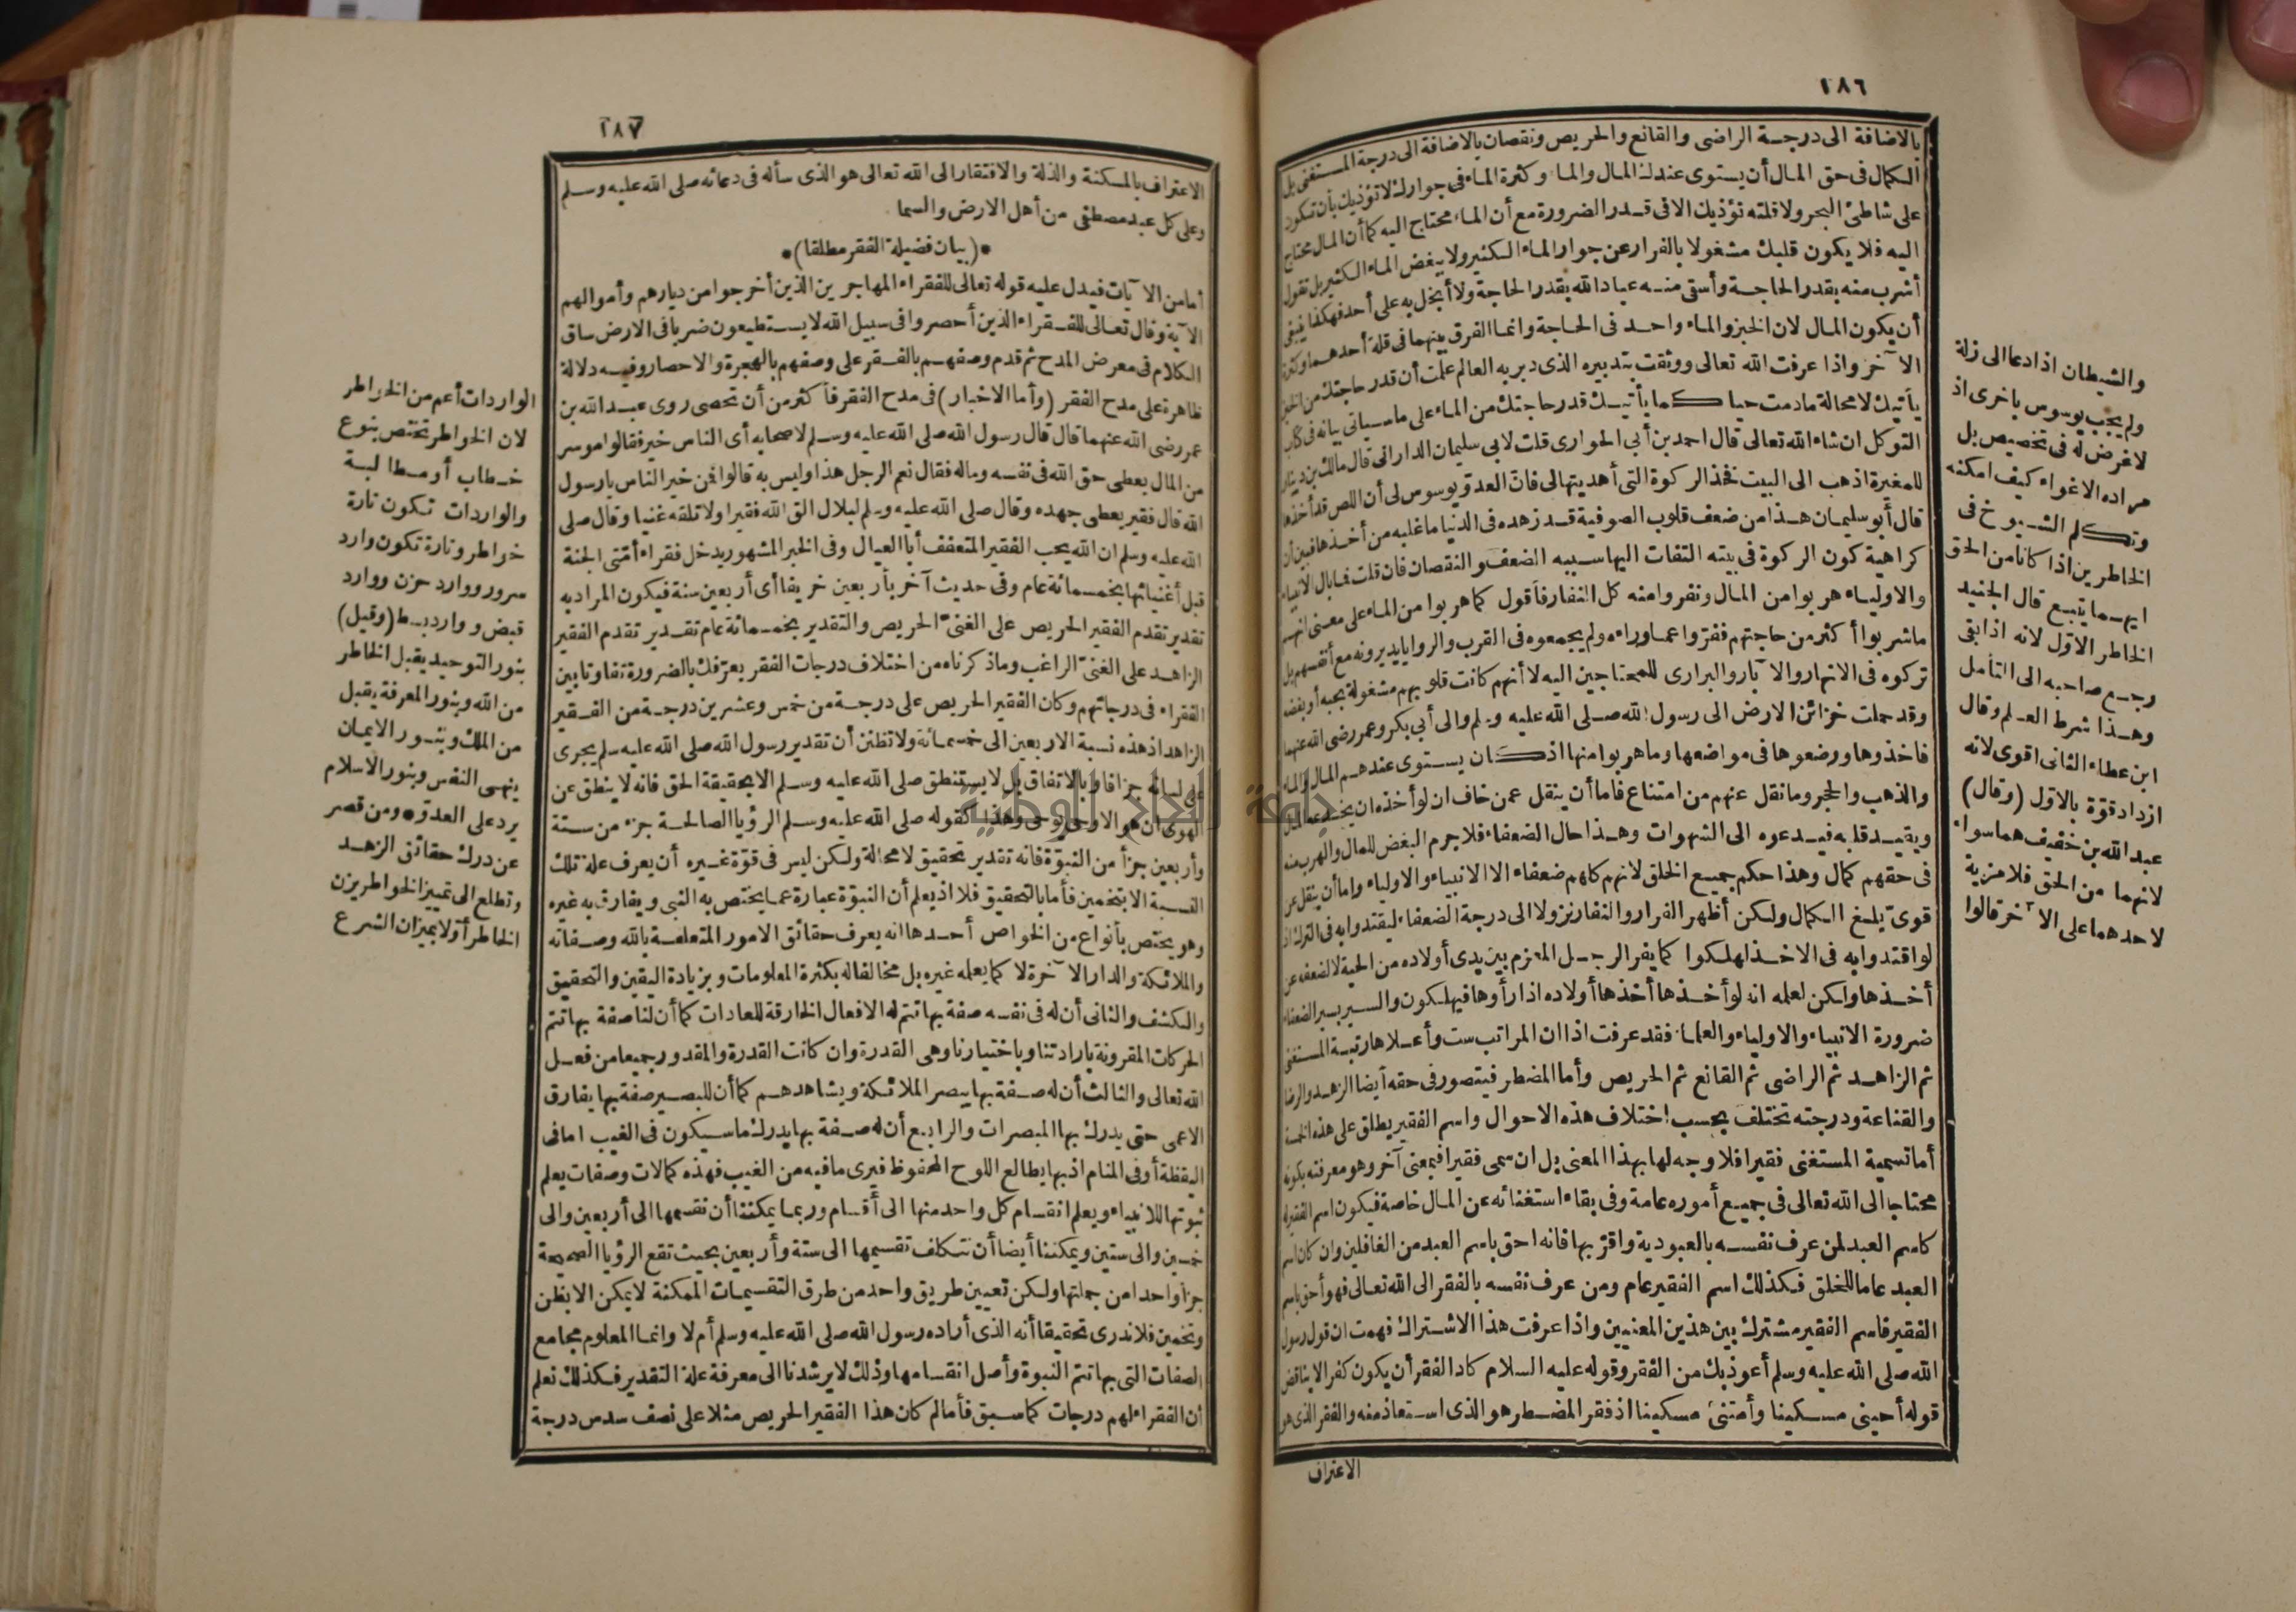 ١٨٦
بالاضافة الى درجة الراضى والقانع والحريص ونقصان بالاضافة الى درجة المستغنى بل
الكمال فى حق المال أن يستوى عندك المال والماء وكثرة الماء فى جوارك لا تؤذيك بأن تكون
على شاطئ البحر ولا قلته تؤذيك الا فى قدر الضرورة مع أن الماء محتاج اليه كما أن المال محتاج
اليه فلا يكون قلبك مشغولا بالفرار عن جوار الماء الكثير ولا ببغض الماء الكثير بل تقول
أشرب منه بقدر الحاجة وأسقى منه عباد الله بقدر الحاجة ولا أبخل به على أحد فهكذا ينبغى
أن يكون المال لان الخبز والماء واحد فى الحاجة وانما الفرق بينهما فى قلة أحدهما وكثرة
الآخر واذا عرفت الله تعالى ووثقت بتدبيره الذى دبر به العالم علمت أن قدر حاجتك من الخبز
يأتيك لامحالة مادمت حيا كما يأتيك قدر حاجتك من الماء على ماسيأتى بيانه فى كتاب
التوكل ان شاء الله تعالى قال احمد بن أبى الحوارى قلت لابى سليمان الدارانى قال مالك بن دينار
للمغيرة اذهب الى البيت فخذ الركوة التى أهديتها لى فان العدوّ يوسوس لى أن اللص قد أخذها
قال أبو سليمان هذا من ضعف قلوب الصوفية قد زهد فى الدنيا ما عليه من أخذها فبين أن
كراهية كون الركوة فى بيته التفات اليها سببه الضعف والنقصان فان قلت فما بال الانبياء
والاولياء هربوا من المال ونفروا منه كل النفار فأقول كما هربوا من الماء على معنى انهم
ما شربوا أكثر من حاجتهم ففرّوا عما وراءه ولم يجمعوه فى القرب والروايا يديرونه مع أنفسهم بل
تركوه فى الانهار والآبار والبرارى للمحتاجين اليه لا أنهم كانت قلوبهم مشغولة بحبه أو بغضه
وقد حملت خزائن الارض الى رسول الله صلى الله عليه وسلم والى أبى بكر وعمر رضى الله عنهما
فأخذوها ووضعوها فى مواضعها وما هربوا منها اذ كان يستوى عندهم المال والماء
والذهب والحجر وما نقل عنهم من امتناع فاما أن ينقل عمن خاف ان لو أخذه ان يخدعه المال
ويقيد قلبه فيدعوه الى الشهوات وهذا حال الضعفاء فلا جرم البغض للمال والهرب منه
فى حقهم كمال وهذا حكم جميع الخلق لانهم كلهم ضعفاء الا الانبياء والاولياء واما أن ينقل عن
قوىّ بلغ الكمال ولكن أظهر الفرار والنفار نزولا الى درجة الضعفاء ليقتدوا به فى الترك اذ
لو اقتدوا به فى الاخذ لهلكوا كما يفر الرجل المعزم بين يدى أولاده من الحية لا لضعفه عن
أخذها ولكن لعلمه انه لو أخذها أخذها أولاده اذا رأوها فيهلكون والسير بسير الضعفاء
ضرورة الانبياء والاولياء والعلماء فقد عرفت اذا ان المراتب ست وأعلاها رتبة المستغنى
ثم الزاهد ثم الراضى ثم القانع ثم الحريص وأما المضطر فيتصور فى حقه أيضا الزهد والرضا
والقناعة ودرجته تختلف بحسب اختلاف هذه الاحوال واسم الفقير يطلق على هذه الخمسة
أما تسمية المستغنى فقيرا فلا وجه لها بهذا المعنى بل ان سمى فقيرا فبمعنى آخر وهو معرفته بكونه
محتاجا الى الله تعالى فى جميع أموره عامة وفى بقاء استغنائه عن المال خاصة فيكون اسم الفقير له
كاسم العبد لمن عرف نفسه بالعبودية واقرّ بها فانه احق باسم العبد من الغافلين وان كان اسم
العبد عاما للخلق فكذلك اسم الفقير عام ومن عرف نفسه بالفقر الى الله تعالى فهو أحق باسم
الفقير فاسم الفقير مشترك بين هذين المعنيين واذا عرفت هذا الاشتراك فهمت ان قول رسول
الله صلى الله عليه وسلم أعوذ بك من الفقر وقوله عليه السلام كاد الفقر أن يكون كفرا لا يناقض
قوله أحينى مسكينا وأمتنى مسكينا اذ فقر المضطر هو الذى استعاذ منه والفقر الذى هو
الاعتراف
والشيطان اذا دعا الى زلة
ولم يجب يوسوس باخرى اذ
لا غرض له فى تخصيص بل
مراده الاغواء كيف امكنه
وتكلم الشيوخ فى
الخاطرين اذا كانا من الحق
ايهما يتبع قال الجنيد
الخاطر الاوّل لانه اذا بقى
رجع صاحبه الى التأمل
وهذا شرط العلم وقال
ابن عطاء الثانى اقوى لانه
ازداد قوّة بالاول (وقال)
عبد الله بن خفيف هما سواء
لانهما من الحق فلا مزية
لاحدهما على الآخر قالوا
١٨٧
الاعتراف بالمسكنة والذلة والافتقار الى الله تعالى هو الذى سأله فى دعائه صلى الله عليه وسلم
وعلى كل عبد مصطفى من أهل الارض والسما
*(بيان فضيلة الفقر مطلقا)*
أما من الآيات فيدل عليه قوله تعالى للفقراء المهاجرين الذين أخرجوا من ديارهم وأموالهم
الآية وقال تعالى للفقراء الذين أحصروا فى سبيل الله لا يستطيعون ضربا فى الارض ساق
الكلام فى معرض المدح ثم قدم وصفهم بالفقر على وصفهم بالهجرة والاحصار وفيه دلالة
ظاهرة على مدح الفقر (وأما الاخبار) فى مدح الفقر فأكثر من أن تحصى روى عبد الله بن
عمر رضى الله عنهما قال قال رسول الله صلى الله عليه وسلم لاصحابه أى الناس خير فقالوا موسر
من المال يعطى حق الله فى نفسه وماله فقال نعم الرجل هذا وليس به قالوا فمن خير الناس يا رسول
الله قال فقير يعطى جهده وقال صلى الله عليه وسلم لبلال الق الله فقيرا ولا تلقه غنيا وقال صلى
الله عليه وسلم ان الله يحب الفقير المتعفف أبا العيال وفى الخبر المشهور يدخل فقراء أمّتى الجنة
قبل أغنيائها بخمسمائة عام وفى حديث آخر بأربعين خريفا أى أربعين سنة فيكون المراد به
تقدير تقدم الفقير الحريص على الغنىّ الحريص والتقدير بخمسمائة عام تقدير تقدم الفقير
الزاهد على الغنىّ الراغب وما ذكرناه من اختلاف درجات الفقر يعرّفك بالضرورة تفاوتا بين
الفقراء فى درجاتهم وكان الفقير الحريص على درجة من خمس وعشرين درجة من الفقير
الزاهد اذ هذه نسبة الاربعين الى خمسمائة ولا تظنن أن تقدير رسول الله صلى الله عليه وسلم يجرى
على لسانه جزافا وبالاتفاق بل لا يستنطق صلى الله عليه وسلم الا بحقيقة الحق فانه لا ينطق عن
الهوى ان هو الا وحى يوحى وهذا كقوله صلى الله عليه وسلم الرؤيا الصالحة جزء من ستة
وأربعين جزأ من النبوّة فانه تقدير تحقيق لامحالة ولكن ليس فى قوّة غيره أن يعرف علة تلك
النسبة الا بتخمين فأما بالتحقيق فلا اذ يعلم أن النبوّة عبارة عما يختص به النبى ويفارق به غيره
وهو يختص بأنواع من الخواص أحدها انه يعرف حقائق الامور المتعلقة بالله وصفاته
والملائكة والدار الآخرة لا كما يعلمه غيره بل مخالفا له بكثرة المعلومات وبزيادة اليقين والتحقيق
والكشف والثانى أن له فى نفسه صفة بها تتم له الافعال الخارقة للعادات كما أن لنا صفة بها تتم
الحركات المقرونة بارادتنا وباختيارنا وهى القدرة وان كانت القدرة والمقدور جميعا من فعل
الله تعالى والثالث أن له صفة بها يبصر الملائكة ويشاهدهم كما أن للبصير صفة بها يفارق
الاعمى حتى يدرك بها المبصرات والرابع أن له صفة بها يدرك ما سيكون فى الغيب اما فى
اليقظة أو فى المنام اذ بها يطالع اللوح المحفوظ فيرى ما فيه من الغيب فهذه كمالات وصفات يعلم
ثبوتها للانبياء ويعلم انقسام كل واحد منها الى أقسام وربما يمكننا أن نقسمها الى أربعين والى
خمسين والى ستين ويمكننا أيضا أن نتكلف تقسيمها الى ستة وأربعين بحيث تقع الرؤيا الصحيحة
جزأ واحدا من جملتها ولكن تعيين طريق واحد من طرق التقسيمات الممكنة لا يمكن الا بظن
وتخمين فلا ندرى تحقيقا أنه الذى أراده رسول الله صلى الله عليه وسلم أم لا وانما المعلوم مجامع
الصفات التى بها تتم النبوة وأصل انقسامها وذلك لا يرشدنا الى معرفة علة التقدير فكذلك نعلم
أن الفقراء لهم درجات كما سبق فأما لم كان هذا الفقير الحريص مثلا على نصف سدس درجة
الواردات أعم من الخواطر
لان الخواطر تختص بنوع
خطاب أو مطالبة
والواردات تكون تارة
خواطر وتارة تكون وارد
سرور ووارد حزن ووارد
قبض ووارد بسط (وقيل)
بنور التوحيد يقبل الخاطر
من الله وبنور المعرفة يقبل
من الملك وبنور الايمان
ينهى النفس وبنور الاسلام
يرد على العدوّ * ومن قصر
عن درك حقائق الزهد
وتطلع الى تمييز الخواطر يزن
الخاطر أوّلا بميزان الشرع
جامعة النجاح الوطنية